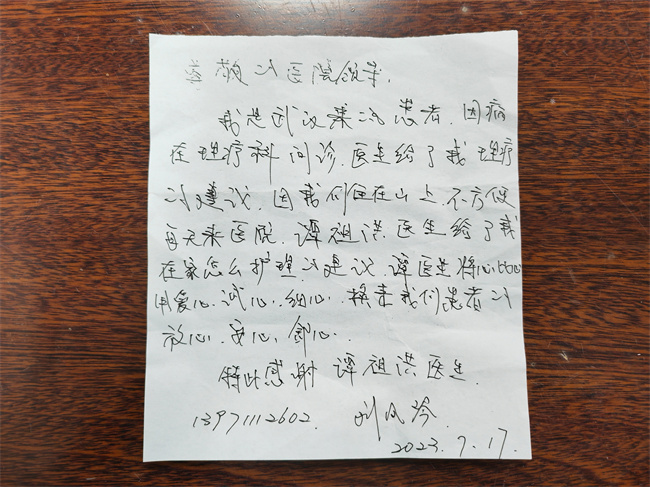 尊敬的医院领导,
我是武汉来的患者,因病
在理疗科问诊.医生给了我理疗
的建议.因我们住在山上.不方便
每天来医院.谭祖洪医生给了我
在家怎么护理的建议.谭医生将心比心
用爱心.诚心.细心.换来我们患者的
放心.安心.舒心.
特此感谢 谭祖洪医生.
13971112602. 刘凤
2023.7.17.